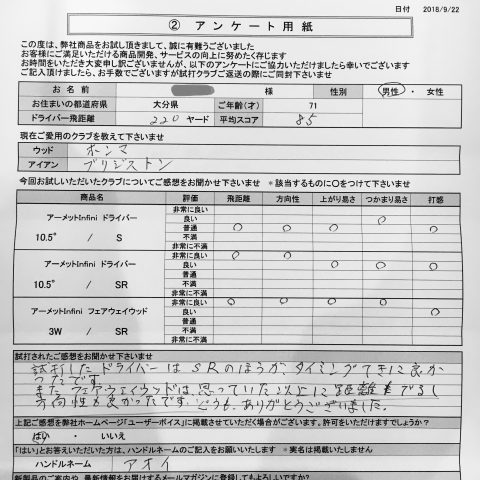 日付 2018/9/22
② アンケート用紙
この度は、弊社商品をお試し頂きまして、誠に有難うございました
お客様にご満足いただける商品開発、サービスの向上に努めたく存じます
お時間をいただき大変申し訳ございませんが、以下のアンケートにご協力いただけましたら幸いでございます
ご記入頂けましたら、お手数でございますが試打クラブご返送の際にご同封下さいませ
お 名 前 様 性別 男性 ・ 女性
お住まいの都道府県 大分県 ご年齢(才) 71
ドライバー飛距離 220 ヤード 平均スコア 85
現在ご愛用のクラブを教えて下さいませ
ウッド ホンマ
アイアン ブリジストン
今回お試しいただいたクラブについてご感想をお聞かせ下さいませ *該当するものに○をつけて下さいませ
商品名 評価 飛距離 方向性 上がり易さ つかまり易さ 打感
アーメットInfini ドライバー
10.5° / S
非常に良い
良い ○
普通 ○ ○ ○ ○
不満
非常に不満
アーメットInfini ドライバー
10.5° / SR
非常に良い ○ ○
良い ○ ○ ○
普通
不満
非常に不満
アーメットInfini フェアウェイウッド
3W / SR
非常に良い ○ ○ ○ ○
良い ○
普通
不満
非常に不満
試打されたご感想をお聞かせ下さいませ
試打したドライバーはSRのほうが、タイミングてきに良か
ったです
またフェアウェイウッドは、思っていた以上に距離もでるし
方向性も良かったです。どうも、ありがとうございました。
上記ご感想を弊社ホームページ「ユーザーボイス」に掲載させていただく場合がございます。許可をいただけますでしょうか?
はい ・ いいえ
「はい」とお答えいただいた方は、ハンドルネームのご記入をお願いいたします *実名は掲載いたしません
ハンドルネーム アオイ
新製品のご案内や、最新情報をお届けするメールマガジンに登録してもよろしいですか?